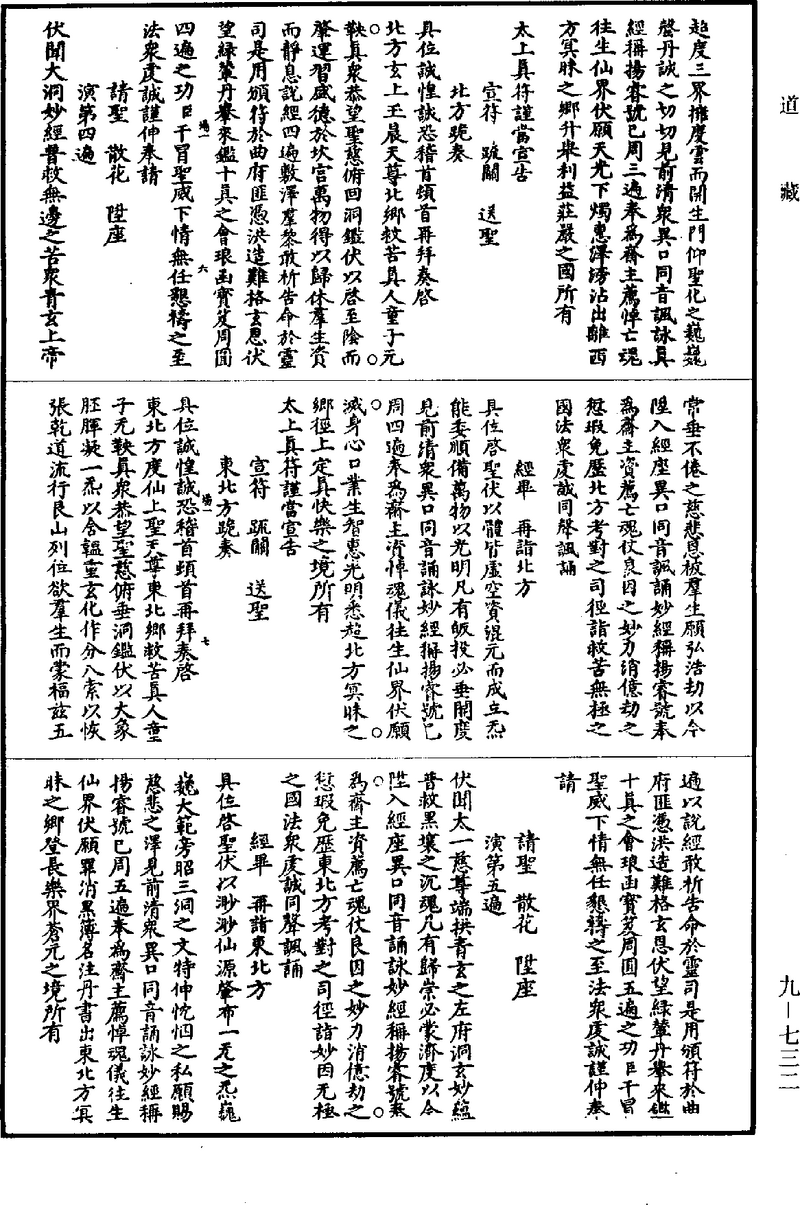 道藏
超度三界擁度雲而開生門仰聖化之巍巍
罄丹誠之切切見前清衆異口同音諷詠真
經稱揚睿號已周三遍奉為齋主薦悼亡魂
往生仙界伏願天光下燭惠澤滂沾出離西
方冥昧之鄉升舉利益莊嚴之國所有
太上真符謹當宣告
宣符 䟽關 送聖
北方跪奏
具位誠惶誠恐稽首頓首再拜奏啓
北方玄上玉晨天尊北鄉救苦真人童子无
鞅真衆恭望聖慈俯回洞鑑伏以啓至陰而
肇運習盛德於坎宮萬物得以歸休羣生資
而靜息說經四遍敷澤羣黎敢析告命於靈
司是用頒符於曲府匪憑洪造難格玄恩伏
望綠輦丹轝來鑑十真之會琅函寶笈周圓
四遍之功臣干冒聖威下情無任懇禱之至
法衆虔誠謹伸奉請
請聖 散花 陞座
演第四遍
伏聞大洞妙經普救無邊之苦衆青玄上帝
常垂不倦之慈悲恩被羣生願弘浩劫以今
陞入經座異口同音諷誦妙經稱揚睿號奉
為齋主資薦亡魂仗良因之妙力消億劫之
愆瑕免歷北方考對之司徑詣救苦無極之
國法衆虔誠同聲諷誦
經畢 再詣北方
具位啓聖伏以體皆虛空資混元而成立炁
能委順備萬物以光明凡有皈投必垂開度
見前清衆異口同音誦詠妙經稱揚睿號已
周四遍奉為齋主資悼魂儀往生仙界伏願
滅身心口業生智惠光明悉超北方冥昧之
鄉徑上定真快樂之境所有
太上真符謹當宣告
宣符 䟽關 送聖
東北方跪奏
具位誠惶誠恐稽首頓首再拜奏啓
東北方度仙上聖天尊東北鄉救苦真人童
子无鞅真衆恭望聖慈俯垂洞鑑伏以大象
胚腪凝一炁以含韞重玄化作分八索以恢
張乾道流行艮山列位欲羣生而蒙福茲五
遍以說經敢析告命於靈司是用頒符於曲
府匪憑洪造難格玄恩伏望綠輦丹轝來鑑
十真之會琅函寶笈周圓五遍之功臣干冒
聖威下情無任懇禱之至法衆虔誠謹伸奉
請
請聖 散花 陞座
演第五遍
伏聞太一慈尊端拱青玄之左府洞玄妙蘊
普救黑壤之沉魂凡有歸崇必蒙濟度以今
陞入經座異口同音誦詠妙經稱揚睿號奉
為齋主資薦亡魂仗良因之妙力消億劫之
愆瑕免歷東北方考對之司徑詣妙因无極
之國法衆虔誠同聲諷誦
經畢 再詣東北方
具位啓聖伏以渺渺仙源肇布一无之炁巍
巍大範旁昭三洞之文特伸忱悃之私願賜
慈悲之澤見前清衆異口同音誦詠妙經稱
揚睿號已周五遍奉為齋主薦悼魂儀往生
仙界伏願罪消黑簿名注丹書出東北方冥
昧之鄉登長樂界蒼元之境所有
九－七三二